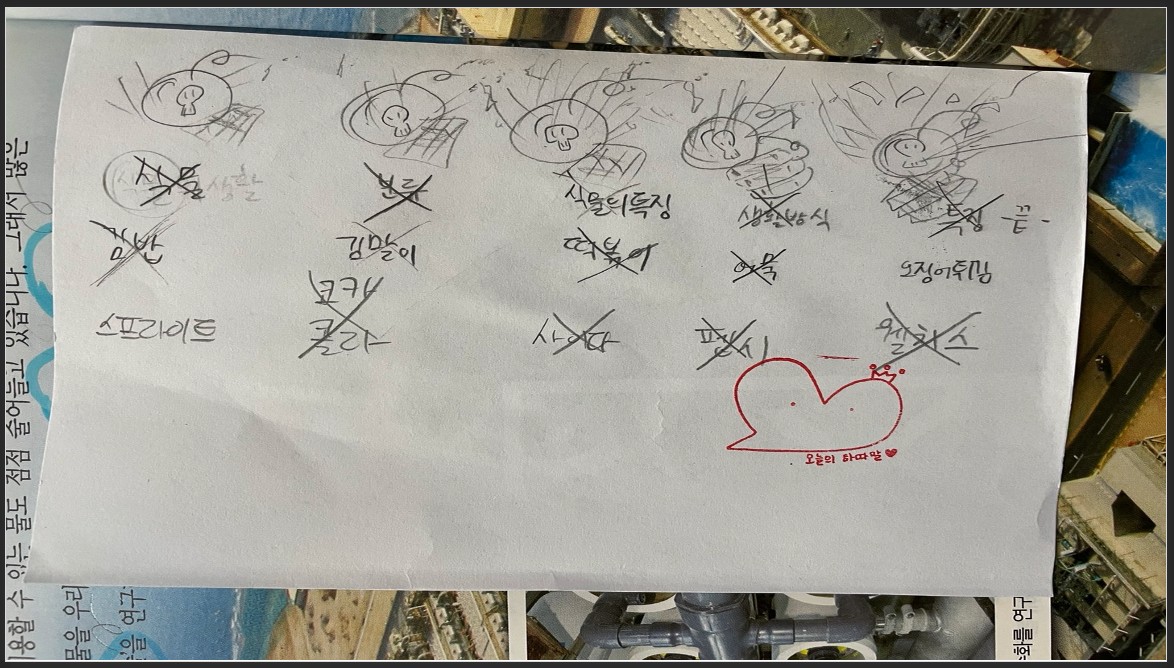 식물 생활 분류 식물의특징 생활방식 특징 -끝-
김밥 김말이 떡볶이 어묵 오징어튀김
스프라이트 코카 사이다 펩시 웰치스
콜라
오늘의 하따말♥
용할 수 있는 물도 점점 줄어들고 있습니다. 그래서 많은
물을 우리
을 연구
연구